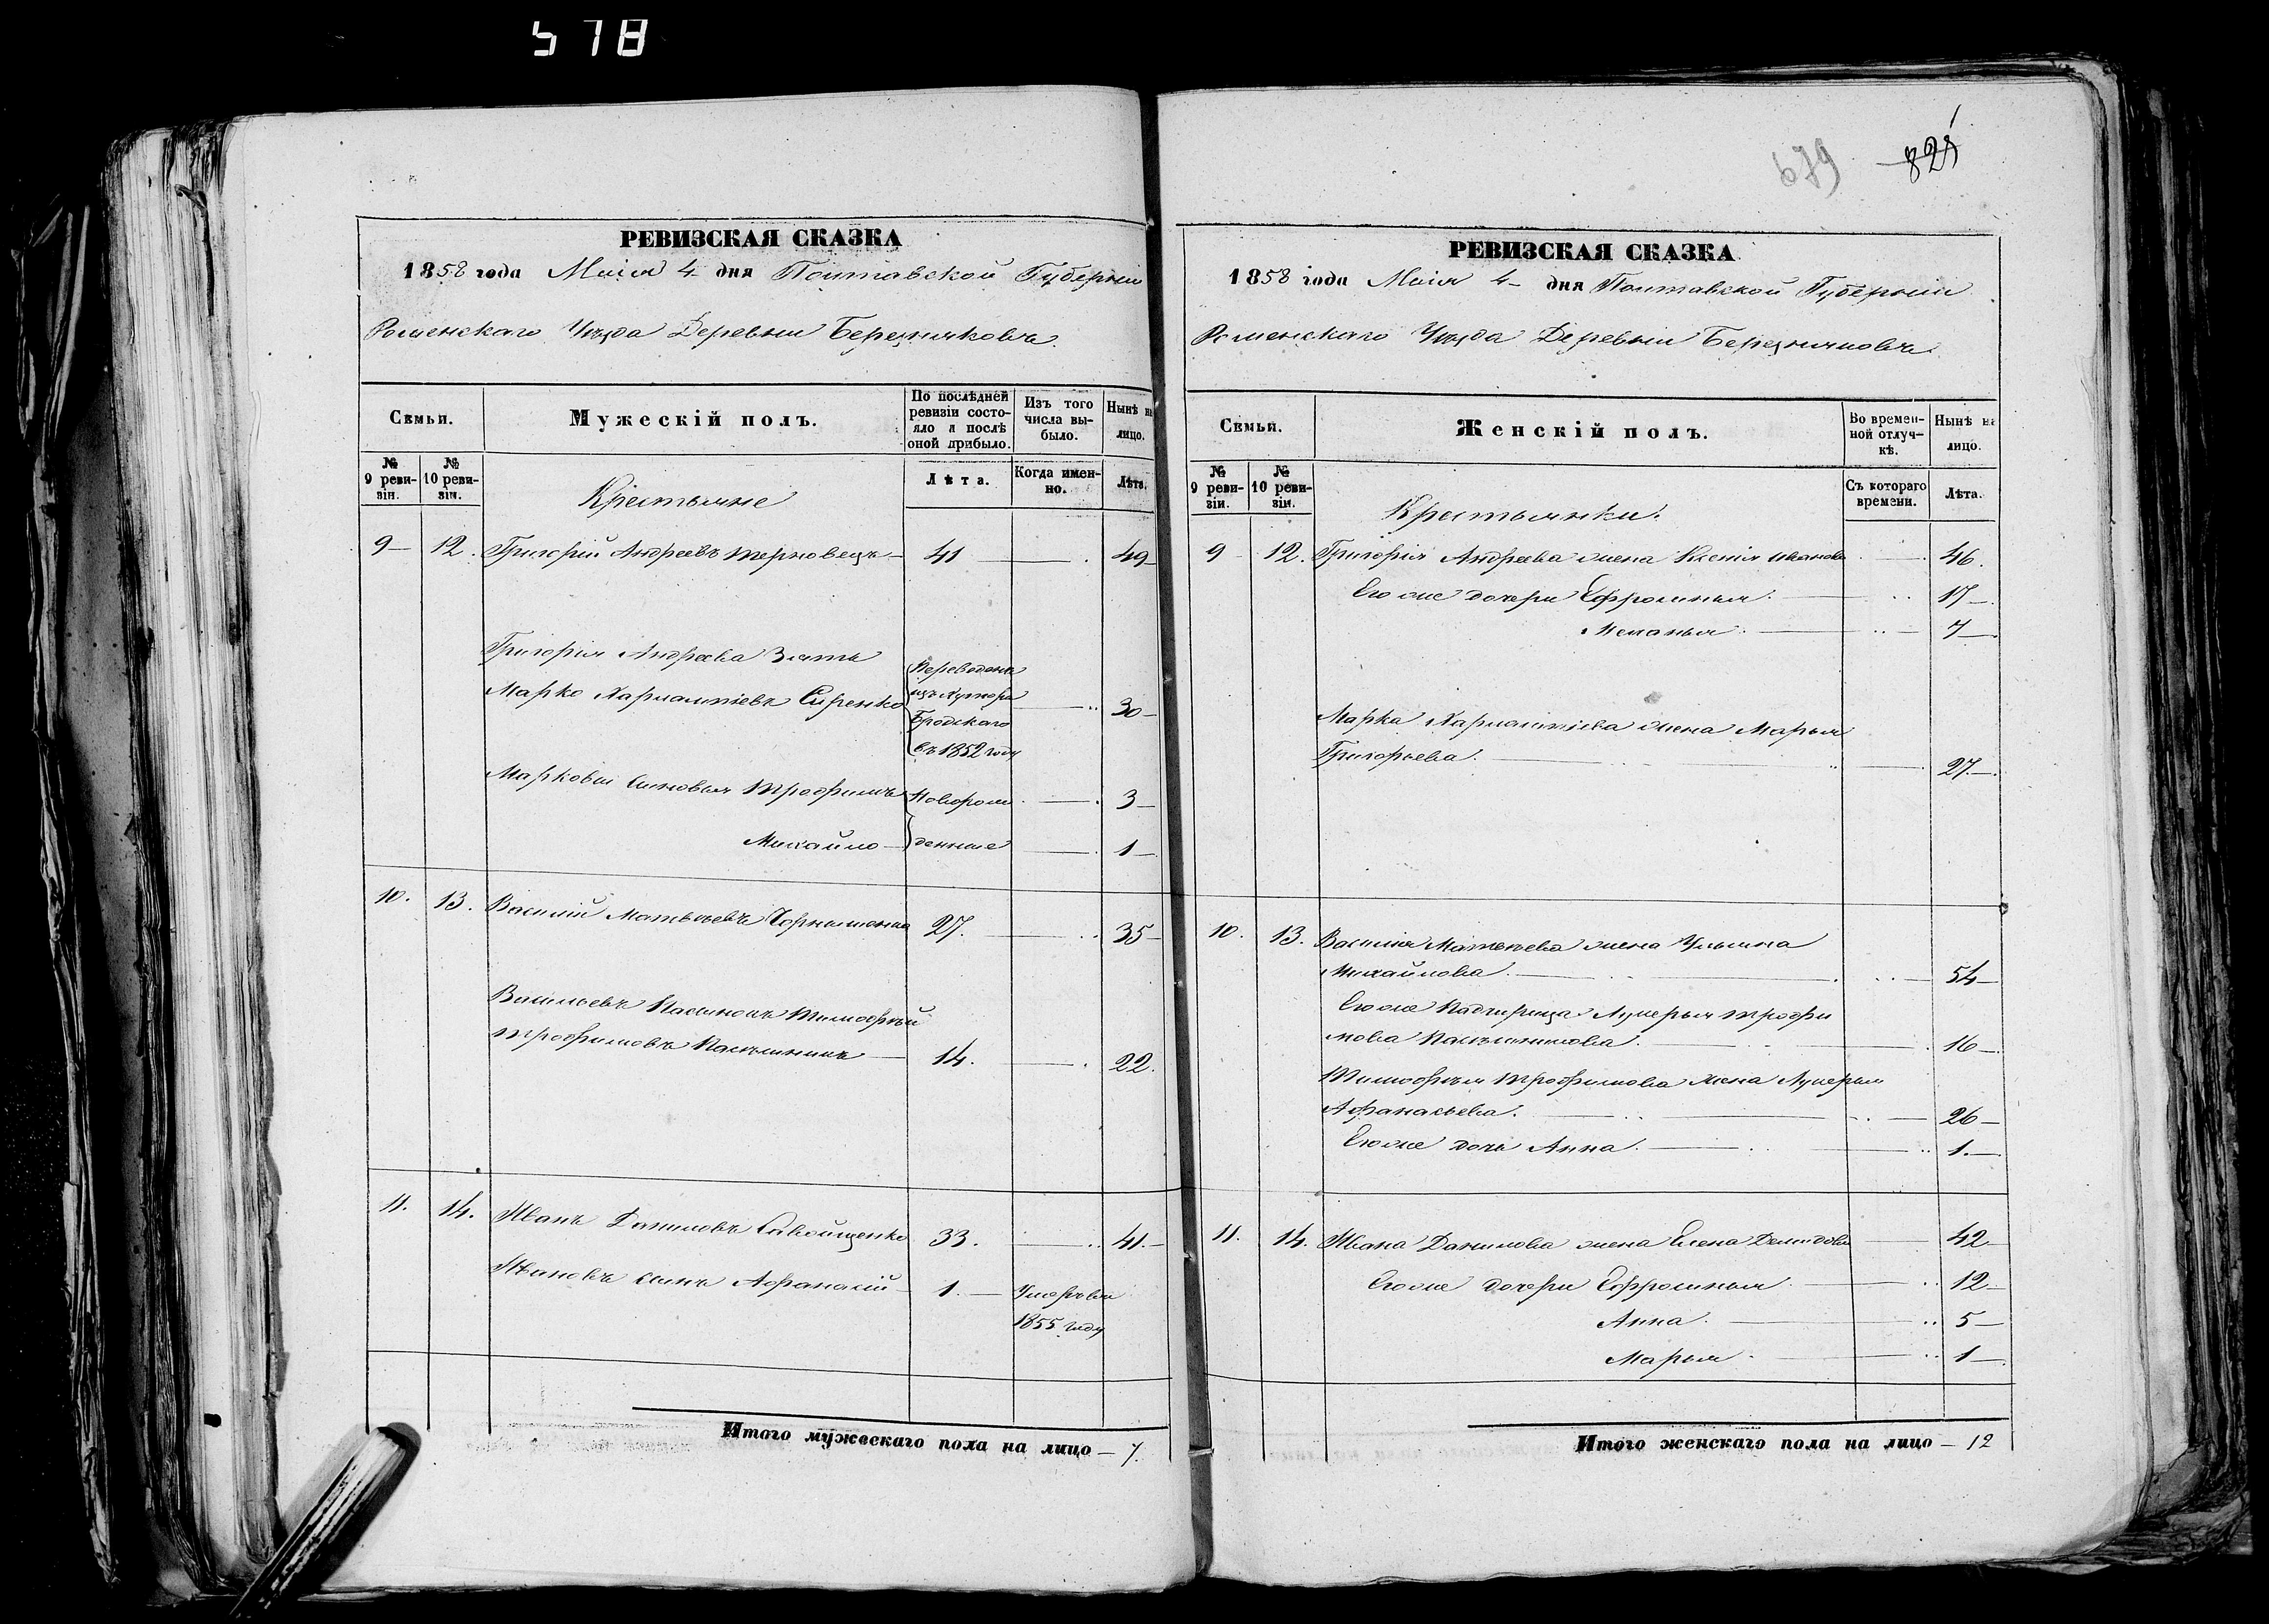 578
РЕВИЗСКАЯ СКАЗКА
1858 года Маія 4 дня Полтавской Губерніи
Роменскаго Уѣзда Деревни Березняковъ
Семьи.
Мужескій полъ.
По послѣдней ревизіи состояло и послѣ оной прибыло.
Изъ того числа выбыло.
Нынѣ на лицо.
№ 9 ревизіи.
№ 10 ревизіи.
Крестьяне
Лѣта.
Когда именно.
Лѣта.
9 12. Григорій Андреевъ Терновецъ 41 49
Григорія Андреева Зять
Марко Харлампіевъ Сиренко 30
Переведенъ
изъ Хутора
Бродскаго
въ 1852 году
Марковы Сыновья Трофимъ Новорож 3
Михайло денные 1
10. 13. Василій Матвѣевъ 27. 35
Васильевъ Пасынокъ Тимофѣй
Трофимовъ 14. 22.
11. 14. Иванъ Даниловъ 33. 41.
Ивановъ сынъ Афанасій 1. Умеръ въ
1855 году
Итого мужескаго пола на лицо 7.
679 821
РЕВИЗСКАЯ СКАЗКА
1858 года Маія 4 дня Полтавской Губерніи
Роменскаго Уѣзда Деревни Березняковъ
Семьи.
Женскій полъ.
Во временной отлучкѣ.
Нынѣ на лицо.
№ 9 ревизіи.
№ 10 ревизіи.
Крестьянки.
Съ котораго времени.
Лѣта.
9 12. Григорія Андреева жена Ксенія Иванова 46.
Его же дочери Ефросинья 17
Меланья 7
Марка Харлампіева жена Марья
Григорьева. 27.
10. 13. Василія Матвѣева жена Ульяна
Михайлова 54
Его же Падчерица Лукерья Трофи
мова 16
Тимофѣя Трофимова жена Лукерья
Афанасьева. 26
Его же дочь Анна. 1.
11. 14. Ивана Данилова жена Елена Демидова 42
Его же дочери Ефросинья 12
Анна. 5
Марья 1
Итого женскаго пола на лицо 12